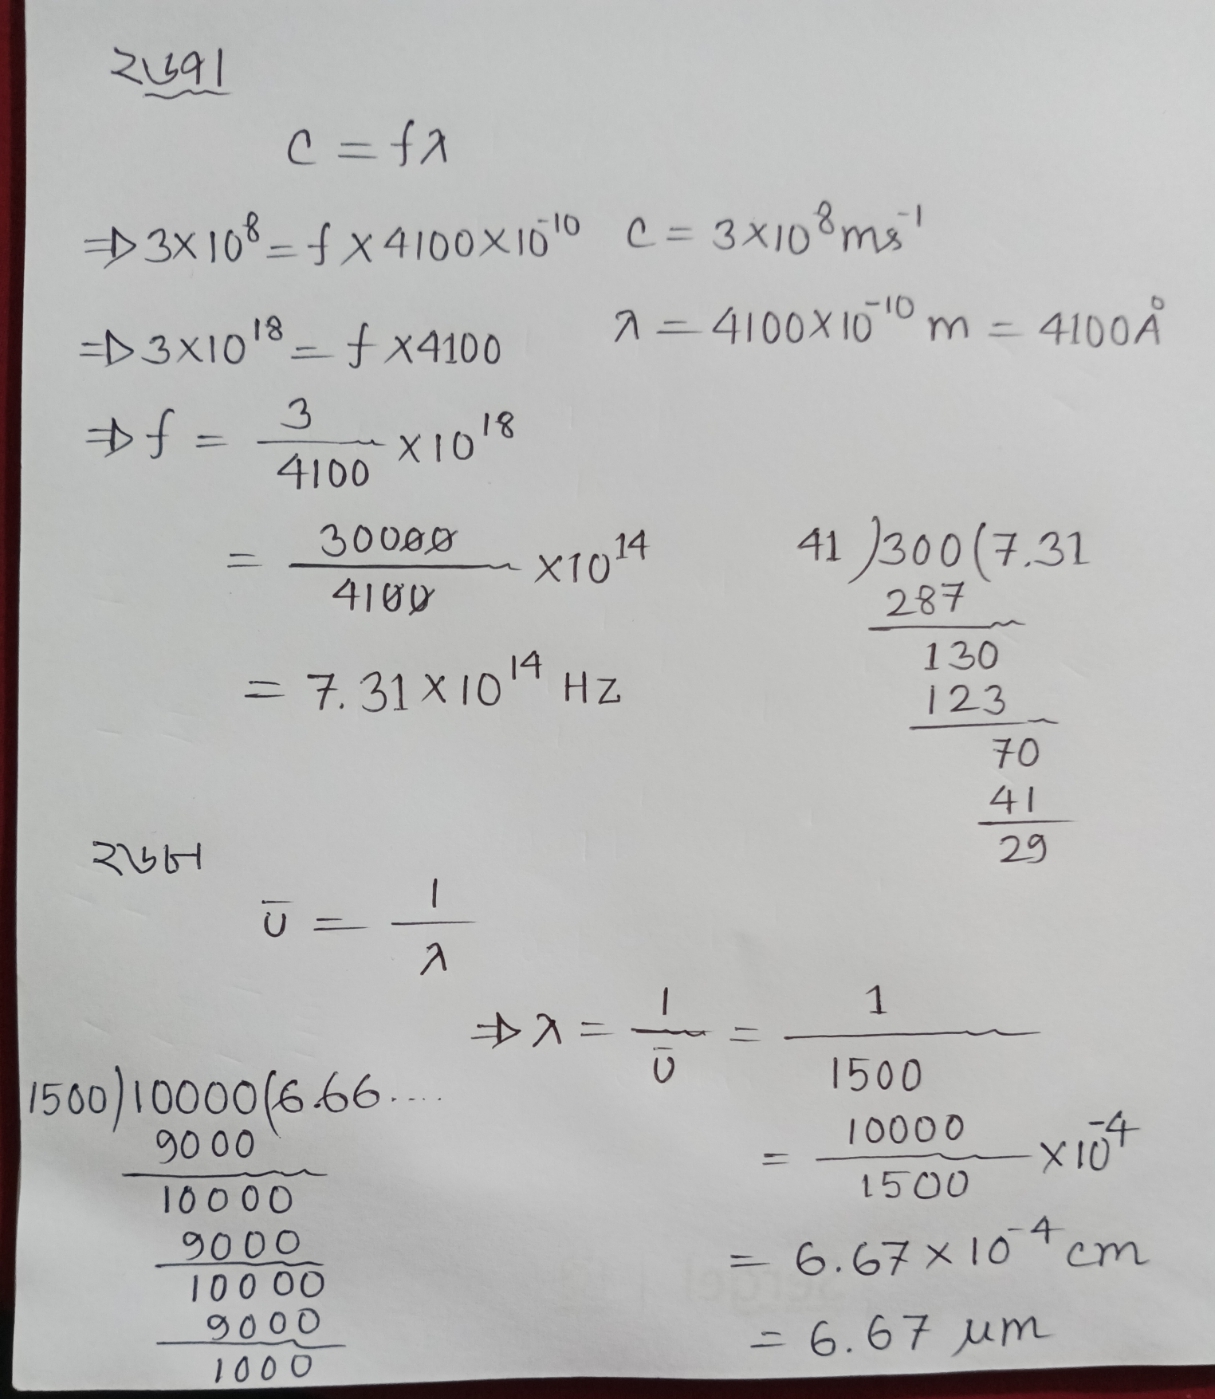 ২৬৭।
C = fλ
⇒ 3×10⁸ = f × 4100×10⁻¹⁰ C = 3×10⁸ ms⁻¹
⇒ 3×10¹⁸ = f ×4100 λ = 4100×10⁻¹⁰ m = 4100Å
⇒ f = 3/4100 ×10¹⁸
= 30000/4100 ×10¹⁴
= 7.31×10¹⁴ Hz
41)300(7.31
287
130
123
70
41
29
২৬৮
ῡ = 1/λ
⇒ λ = 1/ῡ = 1/1500
= 10000/1500 ×10⁻⁴
= 6.67×10⁻⁴ cm
= 6.67 μm
1500)10000(6.66....
9000
10000
9000
10000
9000
1000